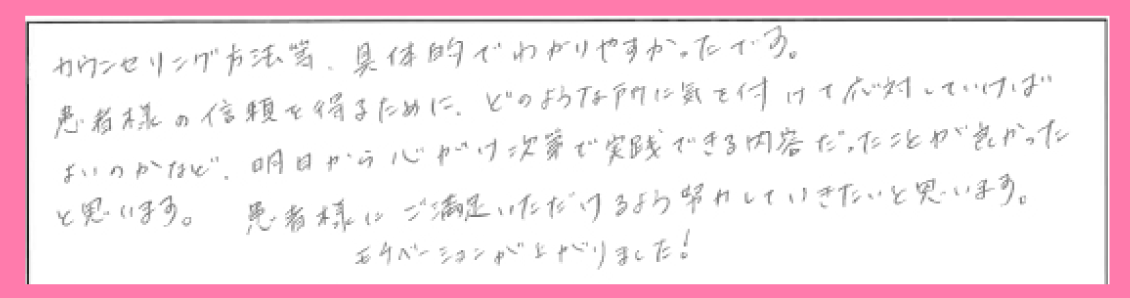 カウンセリング方法等、具体的でわかりやすかったです。
患者様の信頼を得るために、どのような所に気を付けて応対していけば
よいのかなど、明日から心がけ次第で実践できる内容だったことが良かった
と思います。 患者様にご満足いただけるよう努力していきたいと思います。
モチベーションが上がりました!